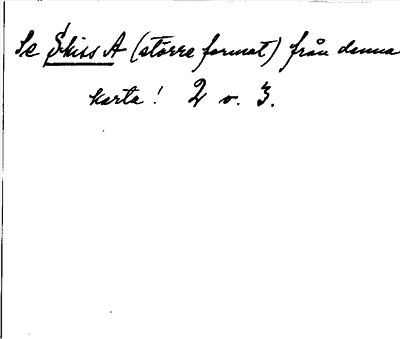 Se Skiss A (större format) från denna
karta! 2 v. 3.